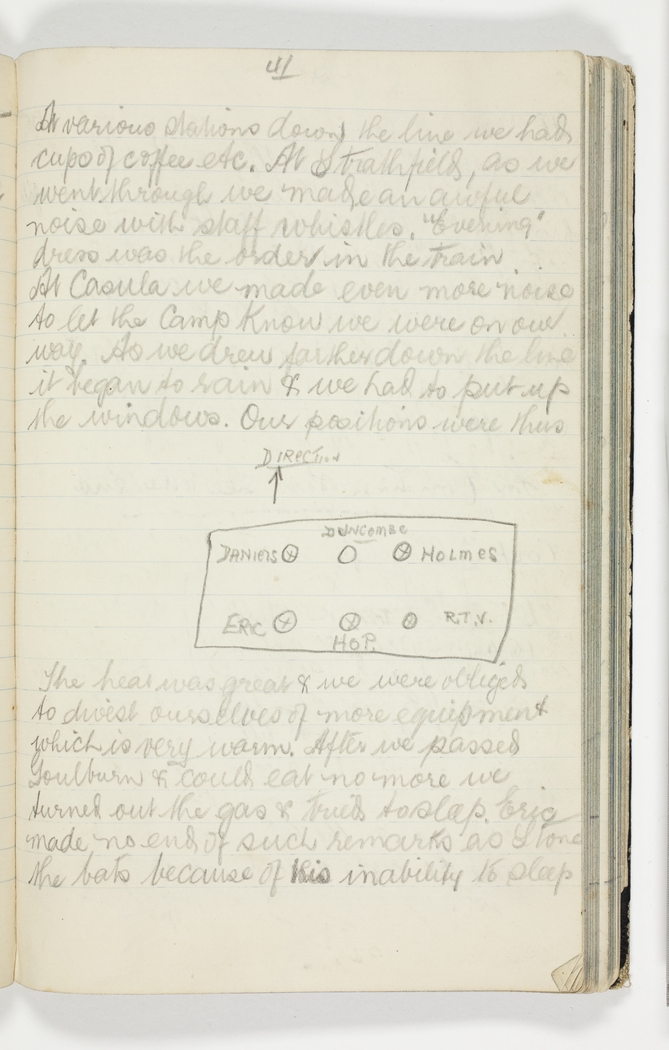 41
At various stations down the line we had
cups of coffee etc. At Strathfield, as we
went through we made an awful
noise with staff whistles. "Evening"
dress was the order in the train
At Casula we made even more noise
to let the Camp Know we were on our
way. As we drew farther down the line
it began to rain & we had to put up
the windows. Our positions were thus
DIRECTION
DUNCOMBE
DANIELS HOLMES
ERIC R.T.V.
HOP.
The heat was great & we were obliged
to divest ourselves of more equipment
which is very warm. After we passed
Goulburn & could eat no more we
turned out the gas & tried to sleep. Eric
made no end of such remarks as Stone
the bats because of his inability to sleep